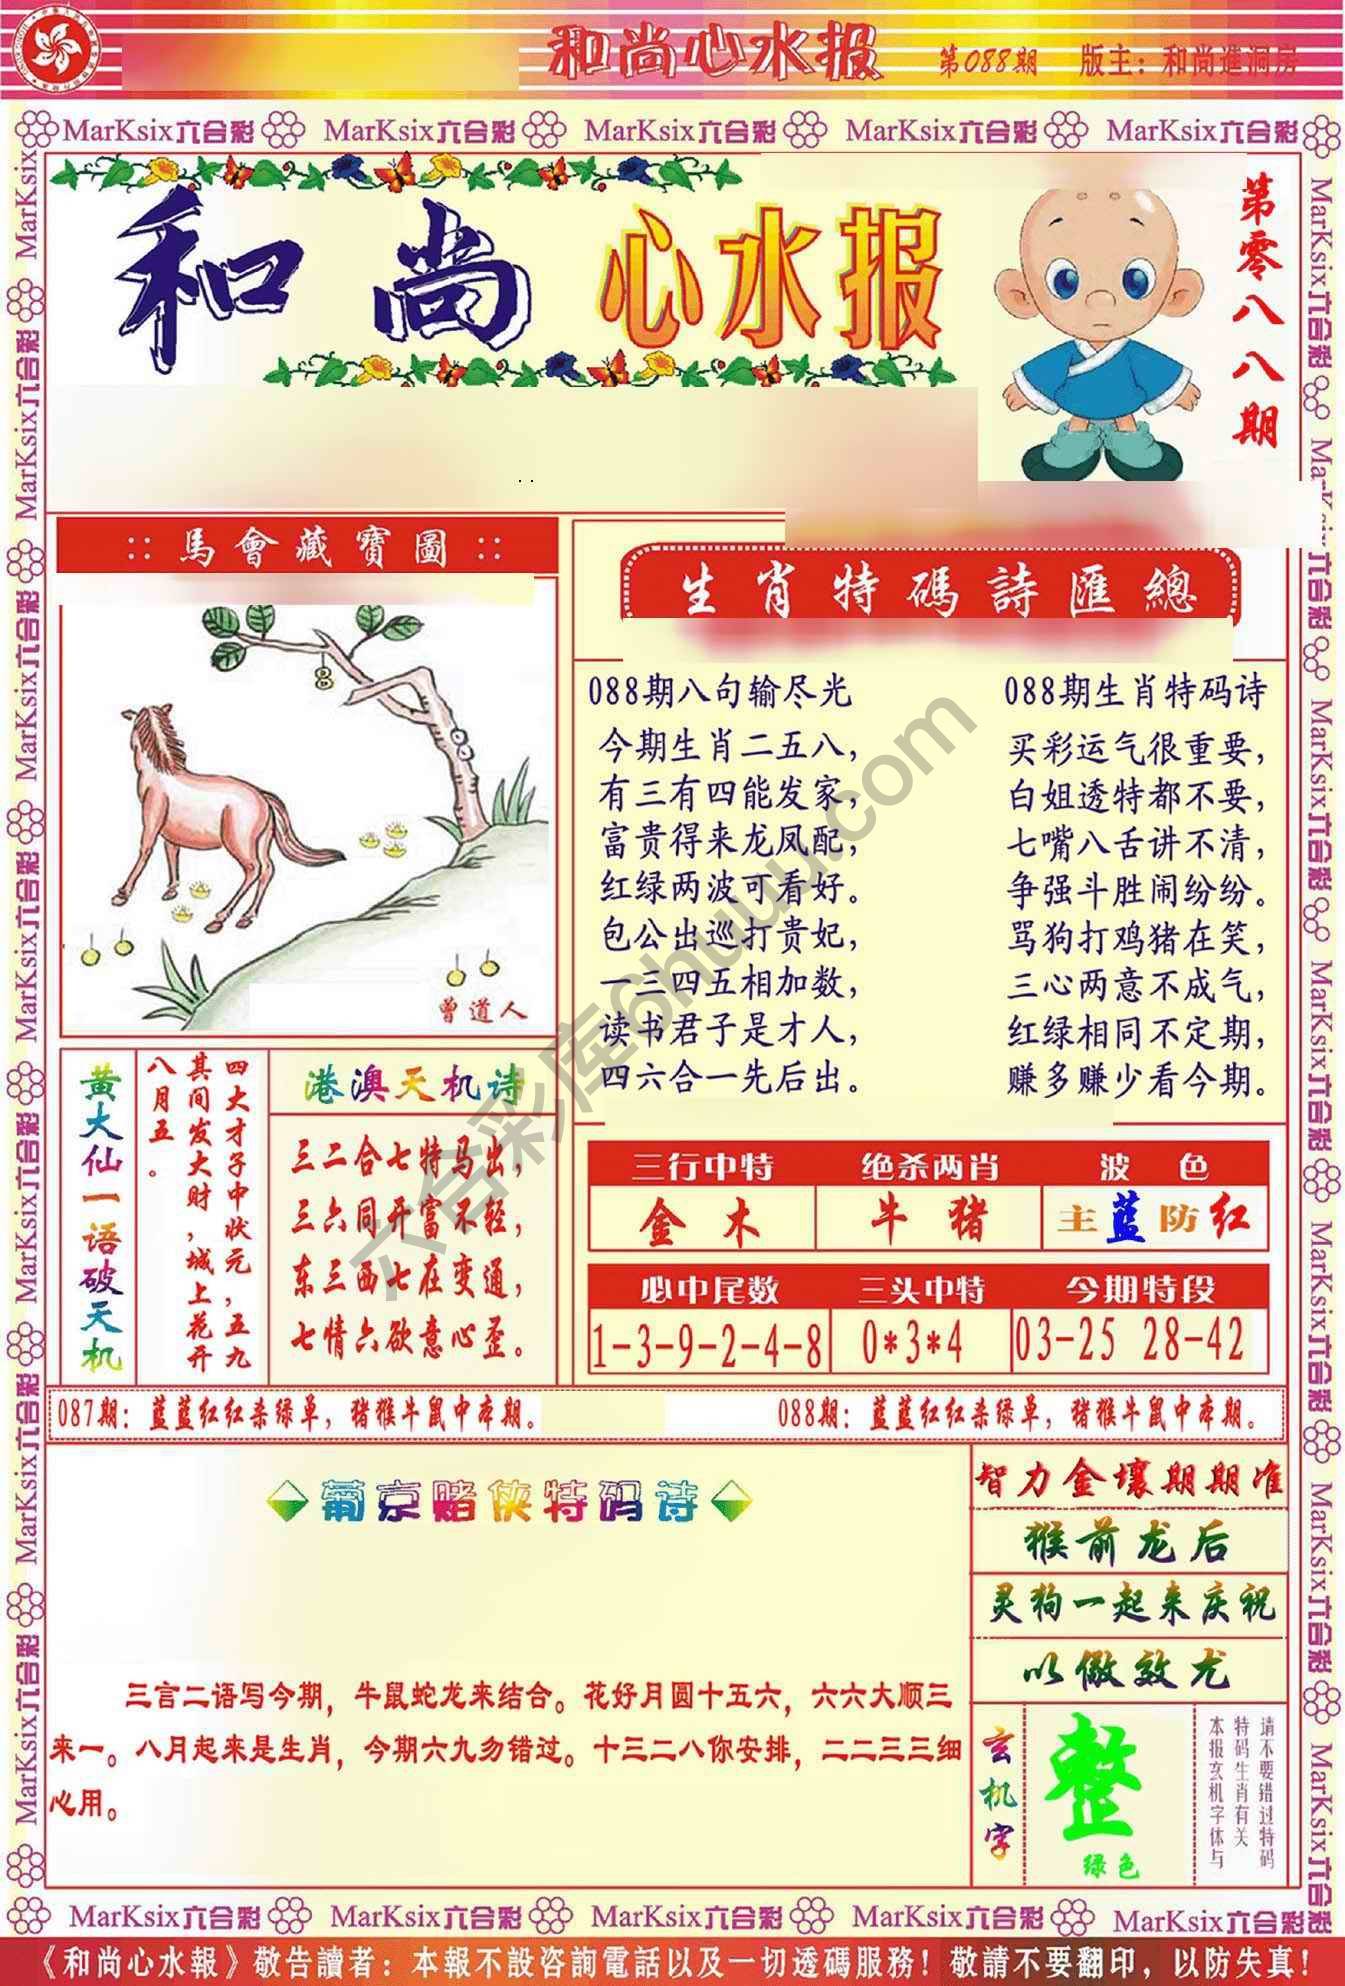 和尚心水报 第088期 版主：和尚進洞房
MarKsix六合彩 MarKsix六合彩 MarKsix六合彩 MarKsix六合彩 MarKsix六合彩
和尚心水报
第零八八期
::馬會藏寶圖::
8
曾道人
生肖特碼詩匯總
088期八句输尽光
今期生肖二五八，
有三有四能发家，
富贵得来龙凤配，
红绿两波可看好。
包公出巡打贵妃，
一三四五相加数，
读书君子是才人，
四六合一先后出。
088期生肖特码诗
买彩运气很重要，
白姐透特都不要，
七嘴八舌讲不清，
争强斗胜闹纷纷。
骂狗打鸡猪在笑，
三心两意不成气，
红绿相同不定期，
赚多赚少看今期。
黄大仙一语破天机
四大才子中状元，五九
其间发大财，城上花开
八月五。
港澳天机诗
三二合七特马出，
三六同开富不轻，
东三西七在变通，
七情六欲意心歪。
三行中特 绝杀两肖 波色
金木 牛猪 主蓝防红
必中尾数 三头中特 今期特段
1-3-9-2-4-8 0*3*4 03-25 28-42
087期：蓝蓝红红杀绿单，猪猴牛鼠中本期。
088期：蓝蓝红红杀绿单，猪猴牛鼠中本期。
葡京赌侠特码诗
三言二语写今期，牛鼠蛇龙来结合。花好月圆十五六，六六大顺三
来一。八月起来是生肖，今期六九勿错过。十三二八你安排，二二三三细
心用。
智力金壤期期准
猴前龙后
灵狗一起来庆祝
以儆效尤
玄机字
整
绿色
请不要错过特码
特码生肖有关
本报玄机字体与
MarKsix六合彩 MarKsix六合彩 MarKsix六合彩 MarKsix六合彩 MarKsix六合彩
《和尚心水報》敬告讀者：本報不設咨詢電話以及一切透碼服務！敬請不要翻印，以防失真！
六合彩库6huu.com